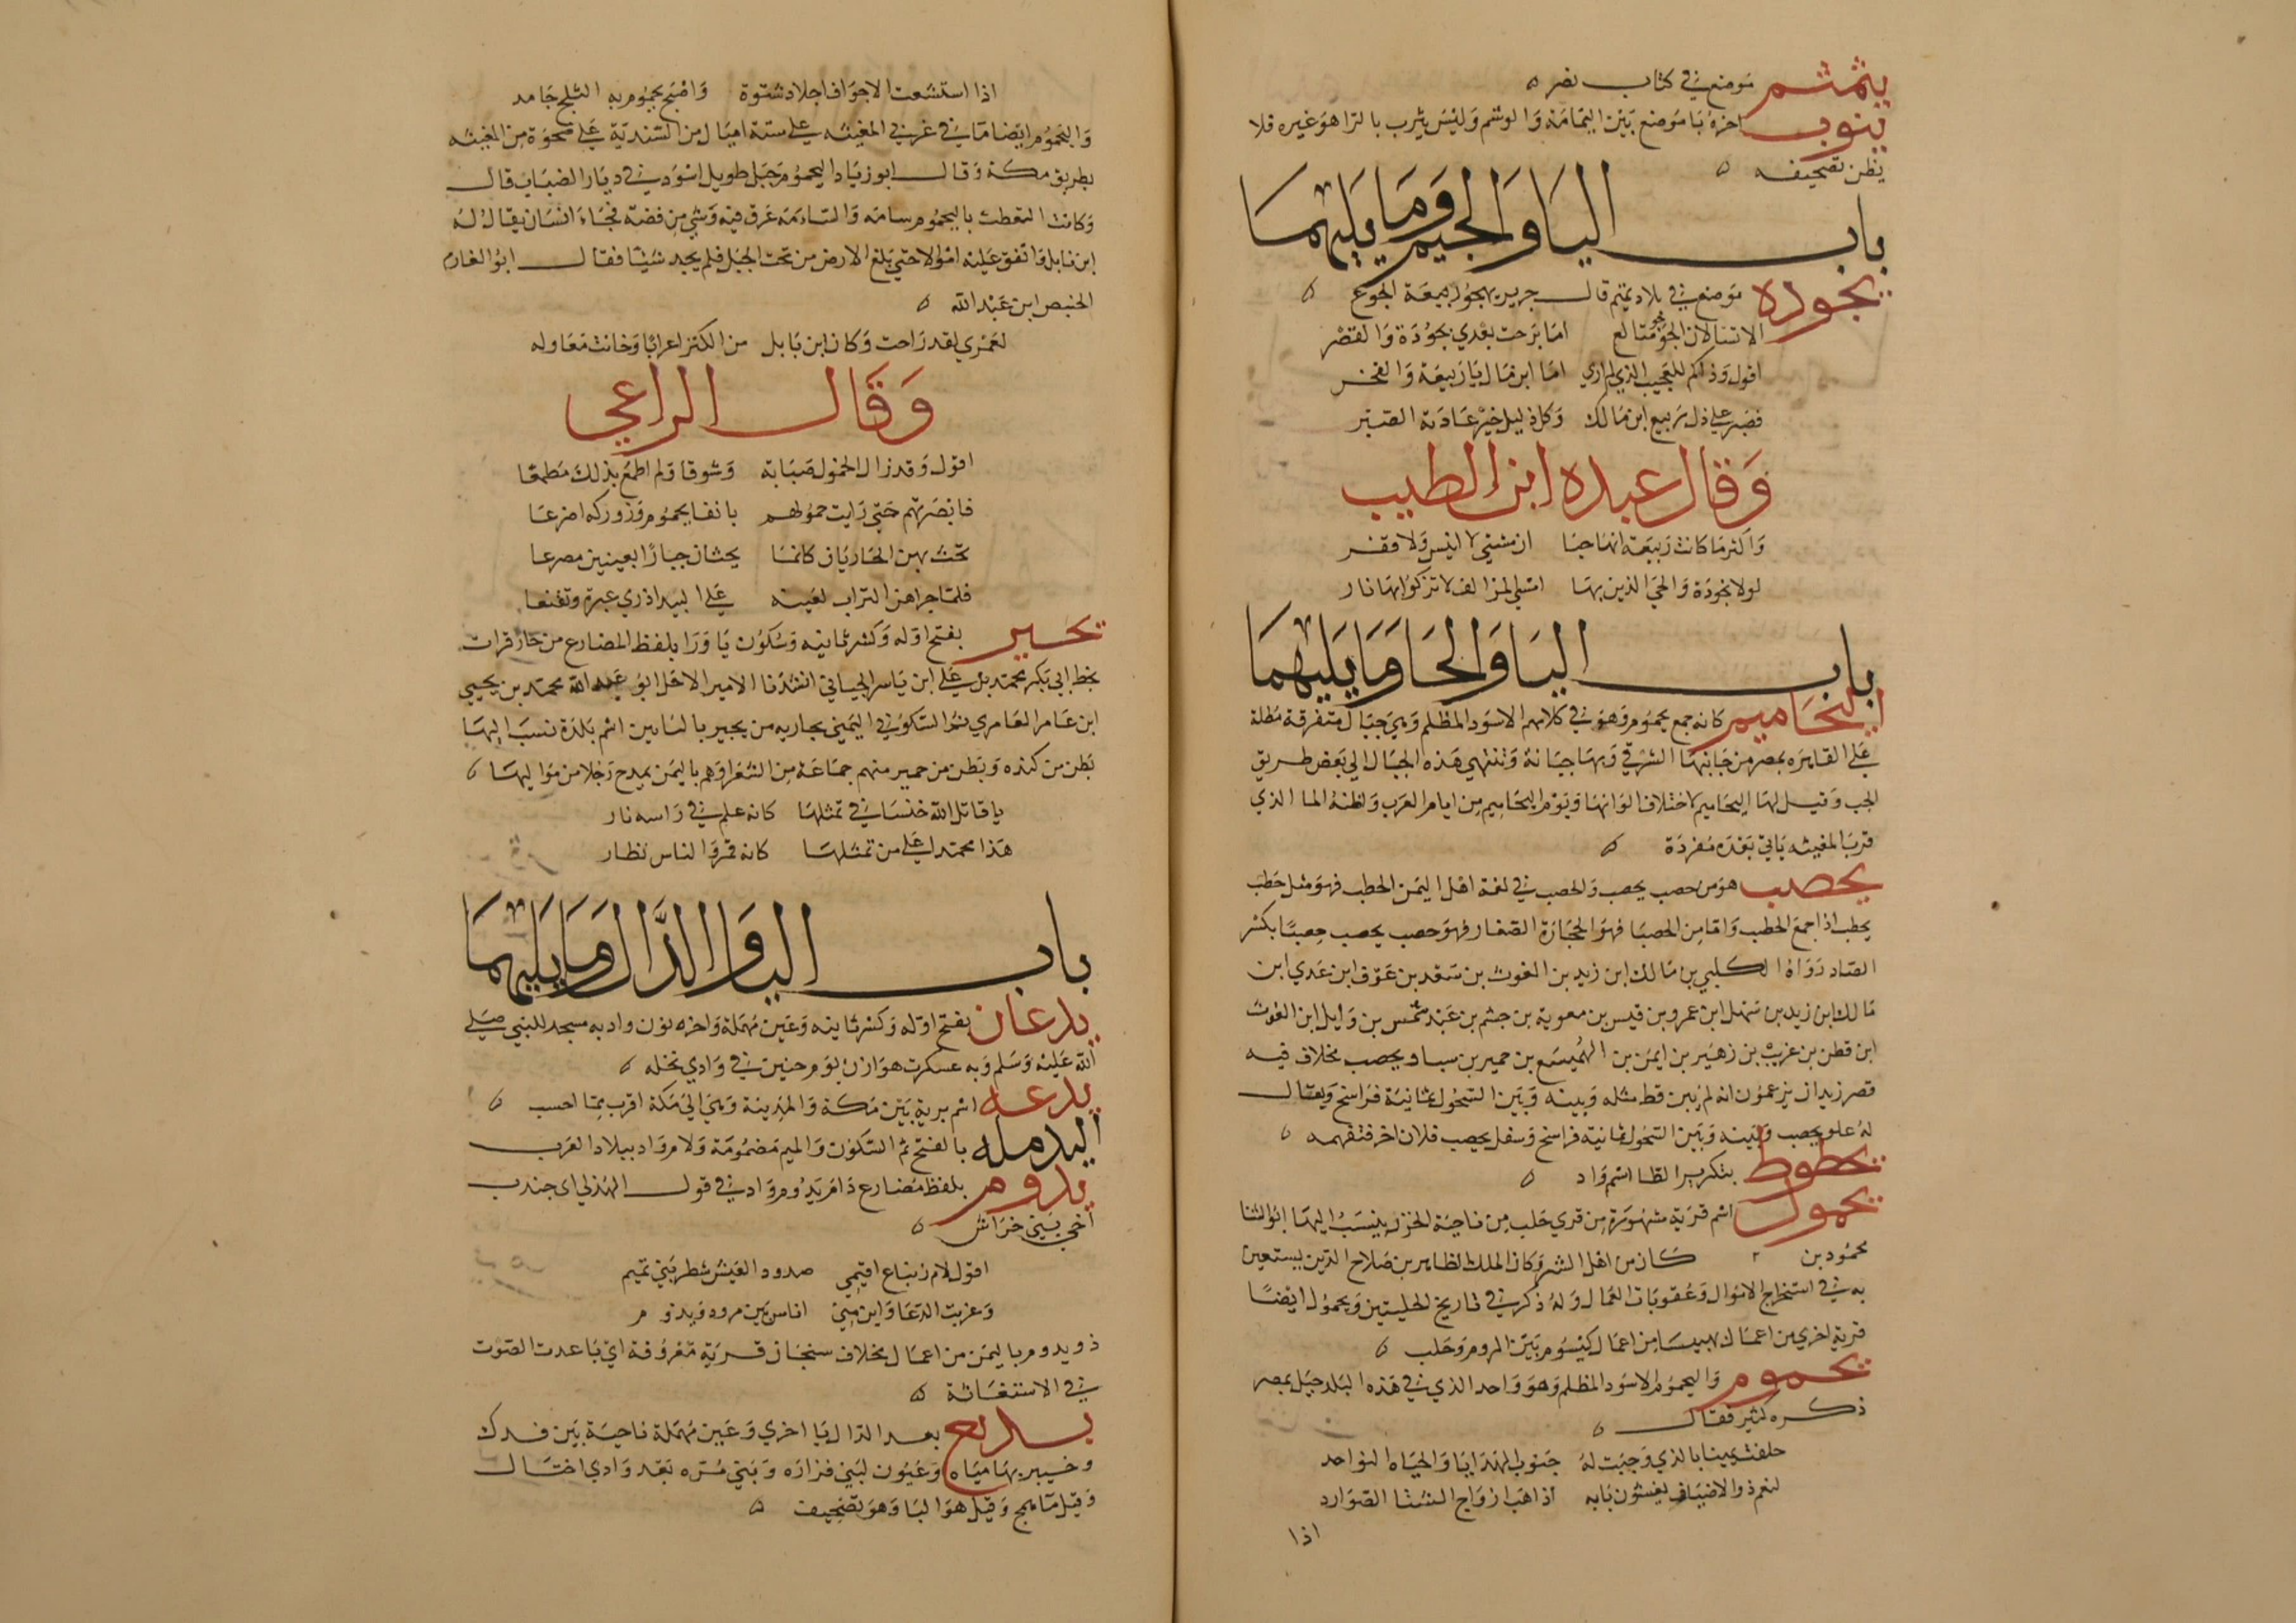 يثمثم موضع في كتاب نصر ه
يثوب اخره با موضع بين اليمامة والوشم وليس يثرب بالرا هو غيره فلا
يظن تصحيفه ه
باب اليا والجيم وما يليهما
يجوده موضع في بلاد تميم قال جرير يهجو ربيعة الجوع ه
الا تسالان الجو جو متالع اما برحت بعدي يجودة والقصر
اقول وذاكم للعجيب الذي ارى امال ابن مال يا ربيعة والفخر
فصبر على ذل ربيع ابن مالك وكل ذليل خير عادته الصبر
وقال عبده ابن الطبيب
واكثر ما كانت ربيعة انها خبا ان مشتى لا انيس ولا قفر
لولا يجودة والحي الذين بها امسى المزالف لا تزكوا بها نار
باب اليا والحا وما يليهما
اليحاميم كانه جمع يحموم وهو في كلامهم الاسود المظلم وهي جبال متفرقة مطلة
على القاهره بمصر من جانبها الشرقي وبها جبانة وتنتهي هذه الجبال الى بعض طريق
الجب وقيل لها اليحاميم لاختلاف الوانها ويوم اليحاميم من ايام العرب واظنه الما الذي
قرب المغيثه ياتي بعده مفردة ه
يحصب هو من حصب يحصب والحصب في لغة اهل اليمن الحطب فهو مثل حطب
يحطب اذا جمع الحطب واما من الحصبا فهو الحجارة الصغار فهو حصب يحصب حصبا بكسر
الصاد رواه الكلبي بن مالك ابن زيد بن الغوث بن سعد بن عوف ابن عدي ابن
مالك ابن زيد بن سهل ابن عمرو بن قيس بن معوية بن جشم بن عبد شمس بن وايل ابن الغوث
ابن قطن بن عريب بن زهير بن ايمن بن الهميسع بن حمير بن سبا ويحصب مخلاف فيه
قصر زيدان يزعمون انه لم يبن قط مثله وبينه وبين السحول ثمانية فراسخ ويقال
له علو يحصب وبينه وبين السحول ثمانية فراسخ وسفل يحصب فلان اخر فتفهمه ه
يحطوط بتكرير الطا اسم واد ه
يحمول اسم قرية مشهورة من قرى حلب من ناحية الجزر ينسب اليها ابو الثنا
محمود بن كان من اهل الشر وكان الملك الظاهر بن صلاح الدين يستعين
به في استخراج الاموال وعقوبات العمال وله ذكر في تاريخ الحلبيين ويحمول ايضا
قرية اخرى من اعمال بهسنا من اعمال كيسوم بين الروم وحلب ه
يحموم واليحموم الاسود المظلم وهو واحد الذي في هذه البلد جبل بمصر
ذكره كثير فقال ه
حلفت يمينا بالذي وجبت له جنوب الهدايا والجباه السواجد
لنعم ذو الاضياف يغشون بابه اذا هب ارواح الشتا الصوارد
اذا
اذا استشعت الاجواف اجلاد شتوة واصبح يحموم به الثلج جامد
واليحموم ايضا ما في غربي المغيثه على ستة اميال من السندية على ضحوة من المغيثه
بطريق مكة وقال ابو زياد اليحموم جبل طويل اسود في ديار الضباب قال
وكانت التقطت باليحموم سامة والسامة عرق فيه وشي من فضة فجاء انسان يقال له
ابن بابل وانفق عليه اموالا حتى بلغ الارض من تحت الجبل فلم يجد شيئا فقال ابو الغارم
الحنبص ابن عبد الله ه
لعمري لقد راحت وكان ابن بابل من الكنز اعرابا وخانت معاوله
وقال الراعي
اقول وقد زال الحمول صبابة وشوقا ولم اطمع بذلك مطمعا
فابصرتهم حتى رايت حمولهم بانقا يحموم ووركه اضرعا
تحث بهن الحاديان كانما يحثان جبارا بعينين مصرعا
يحير بفتح اوله وكسر ثانيه وسكون يا ورا بلفظ المضارع من حار قرات
بخط ابي بكر محمد بن علي ابن ياسر الجياني انشدنا الامير الاخل ابو عبد الله محمد بن يحيى
ابن عامر العامري
بطن من كنده وبطن من حمير منهم جماعة من الشعرا وهم باليمن يمدح رجلا من مواليها ه
يا قاتل الله خنسا في تمثلها كانه علم في راسه نار
هذا محمد اعلى من تمثلها كانه قمر والناس نظار
باب اليا والدال وما يليهما
يدعان بفتح اوله وكسر ثانيه وعين مهملة واخره نون واد به مسجد للنبي صلى
الله عليه وسلم وبه عسكرت هوازن يوم حنين في وادي نخله ه
يدعه اسم برية بين مكة والمدينة وهي الى مكة اقرب مما احسب ه
اليدمله بالفتح ثم السكون والميم مضمومة ولام واد ببلاد العرب
يدوم بلفظ مضارع دام يدوم واد في قول الهذلي اى جندب
اخي بني خراش ه
اقول لام زنباع اقيمي صدود العيش شطر بني تميم
وغربت الدعا واين مني اناس بين مروه ويدوم
ذو يدوم باليمن من اعمال مخلاف سنجان قرية معروفة اي باعدت الصوت
في الاستغاثة ه
يديع بعد الدال يا اخرى وعين مهملة ناحية بين فدك
وخيبر بها مياه وعيون لبني فزاره وبني مره بعد وادي اختال
وقيل ما همج وقيل هو البا وهو تصحيف ه